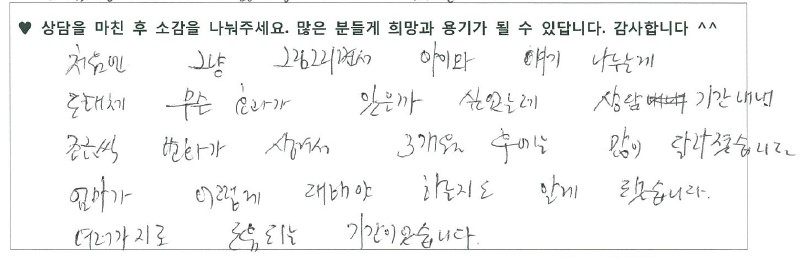 ♥ 상담을 마친 후 소감을 나눠주세요. 많은 분들께 희망과 용기가 될 수 있답니다. 감사합니다 ^^
처음엔 그냥 그림그리면서 아이와 얘기 나누는게
도대체 무슨 효과가 있을까 싶었는데 상담 기간내내
조금씩 변화가 생겨서 3개월 후에는 많이 달라졌습니다
엄마가 어떻게 대해야 하는지도 알게 됐습니다.
여러가지로 도움되는 기간이었습니다.